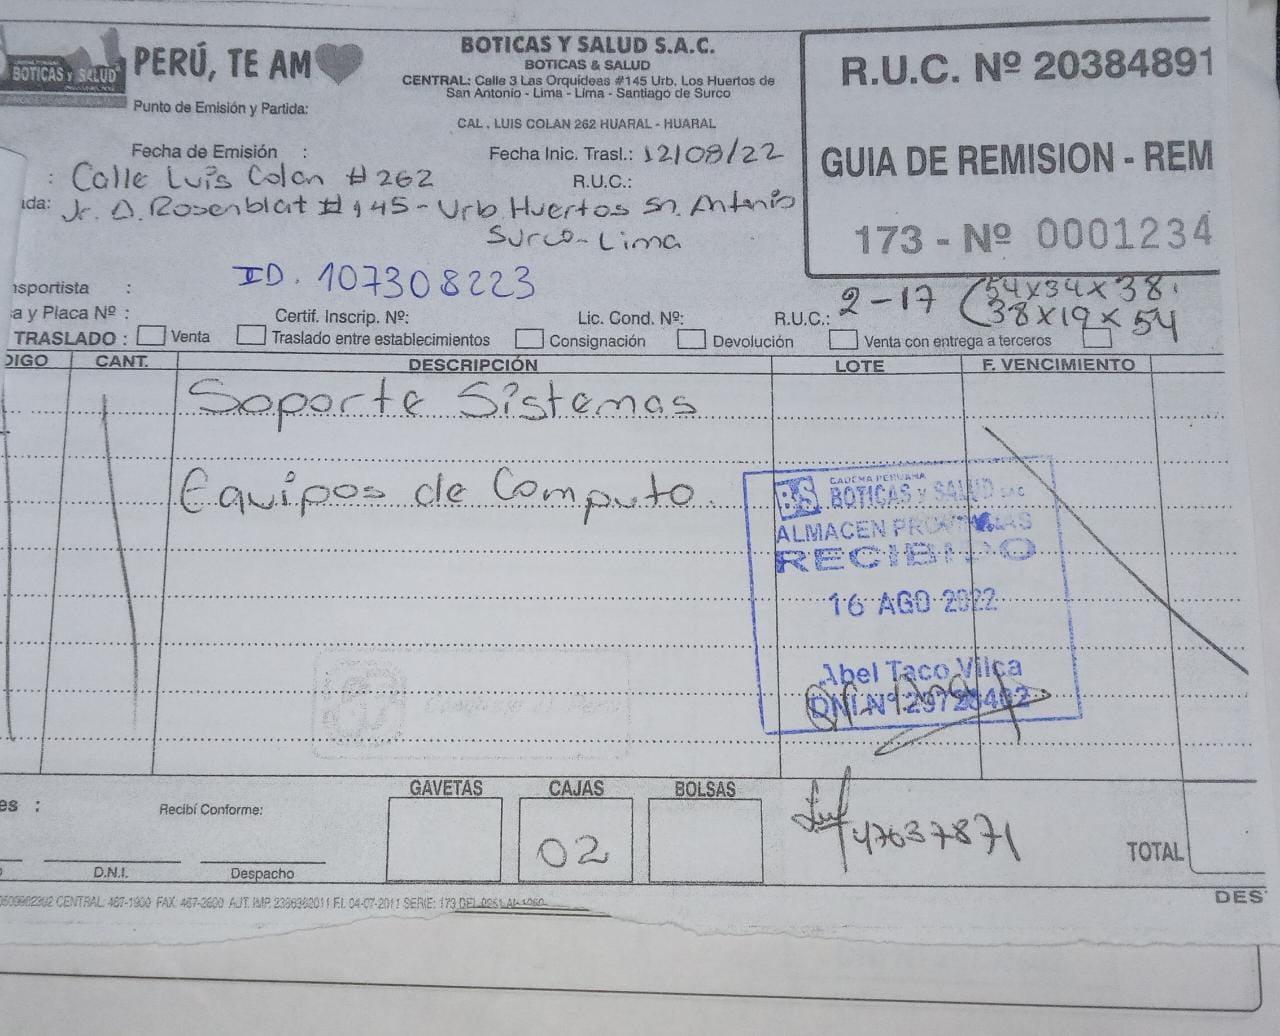 BOTICAS y SALUD
PERÚ, TE AM
BOTICAS Y SALUD S.A.C.
BOTICAS & SALUD
CENTRAL: Calle 3 Las Orquideas #145 Urb. Los Huertos de
San Antonio - Lima - Lima - Santiago de Surco
Punto de Emisión y Partida:
CAL . LUIS COLAN 262 HUARAL - HUARAL
R.U.C. Nº 20384891
GUIA DE REMISION - REM
173 - Nº 0001234
Fecha de Emisión :
Fecha Inic. Trasl.: 12/08/22
: Calle Luis Colan # 262
R.U.C.:
ida: Jr. D. Rosenblat # 145 - Urb. Huertos Sn. Antonio
Surco - Lima
ID. 107308223
nsportista :
2-17 (54x34x38
38x19x54
a y Placa Nº :
Certif. Inscrip. Nº:
Lic. Cond. Nº:
R.U.C.:
TRASLADO :
Venta
Traslado entre establecimientos
Consignación
Devolución
Venta con entrega a terceros
DIGO CANT. DESCRIPCIÓN LOTE F. VENCIMIENTO
Soporte Sistemas
Equipos de Computo.
CADENA PERUANA
BS BOTICAS y SALUD SAC
ALMACEN PROVINCIAS
RECIBIDO
16 AGO 2022
Abel Taco Vilca
DNI Nº 29726402
es :
Recibí Conforme:
GAVETAS CAJAS BOLSAS
02
47637871
TOTAL
D.N.I.
Despacho
CENTRAL. 467-1900 FAX. 467-2600 AJT. IMP. 2366362011 F.I. 04-07-2011 SERIE: 173
DES